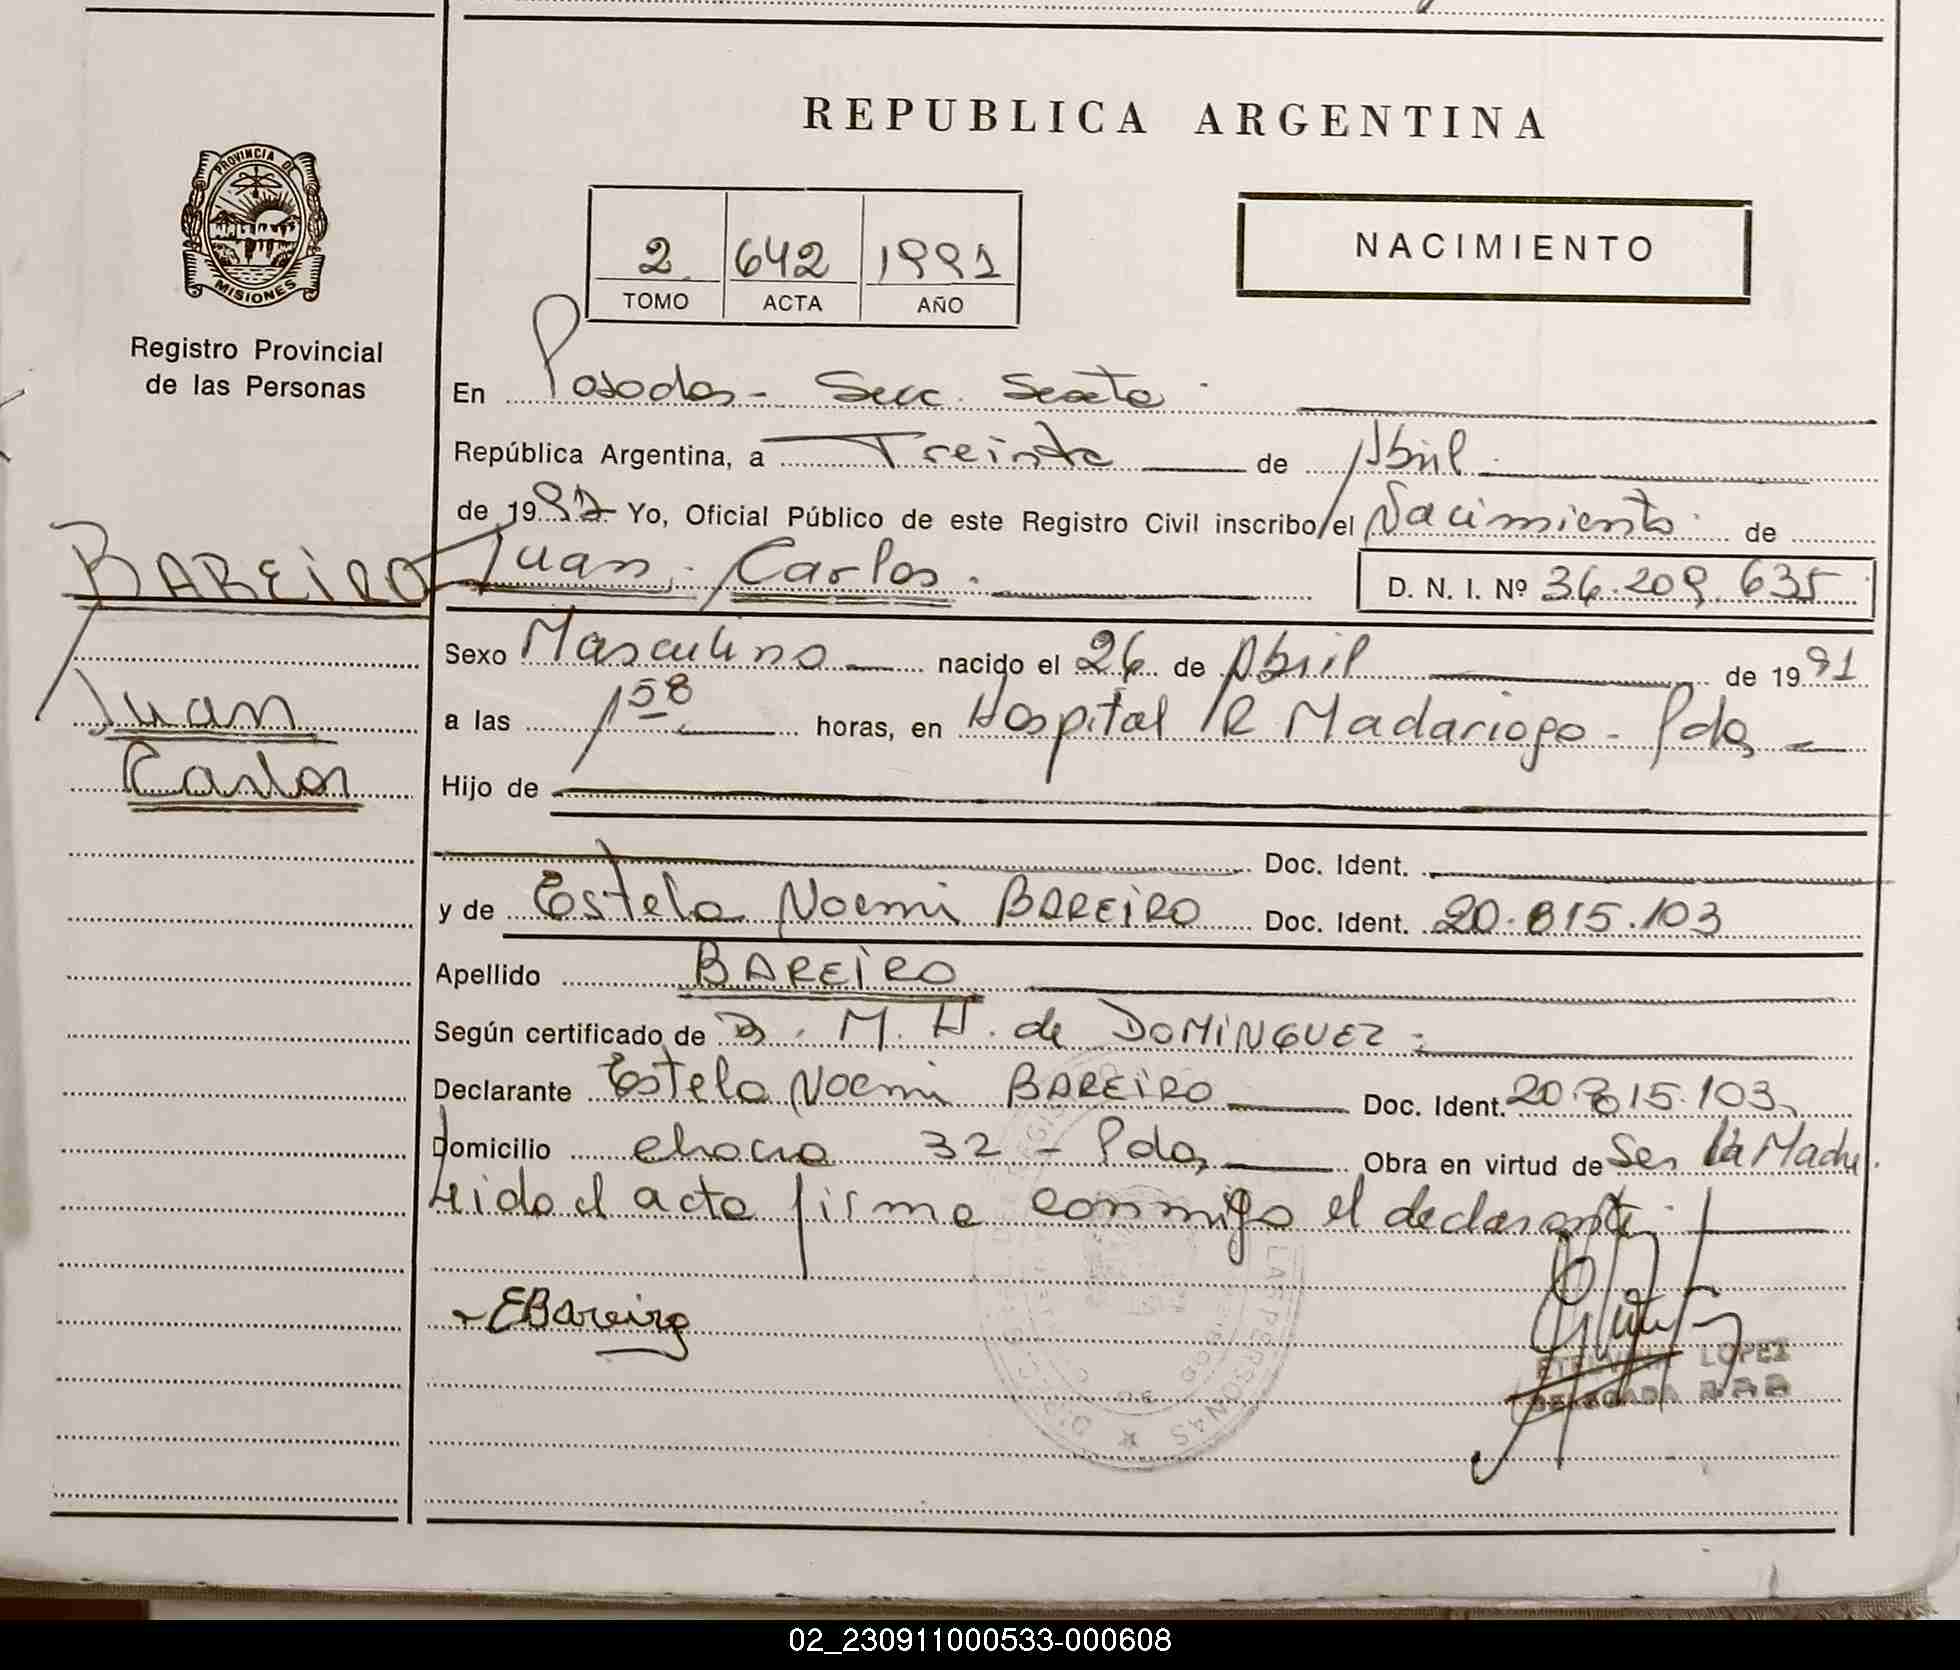 REPUBLICA ARGENTINA
PROVINCIA DE
MISIONES
Registro Provincial
de las Personas
2 642 1991
TOMO ACTA AÑO
NACIMIENTO
En Posadas - Secc. Sexta
República Argentina, a Treinta de Abril
de 1991 Yo, Oficial Público de este Registro Civil inscribo el Nacimiento de
BAREIRO Juan Carlos. D. N. I. Nº 36.209.635
Sexo Masculino nacido el 26 de Abril de 1991
Juan
Carlos
a las 1 58 horas, en Hospital R Madariaga - Pdas
Hijo de
Doc. Ident.
y de Estela Noemi BAREIRO Doc. Ident. 20.815.103
Apellido BAREIRO
Según certificado de D. M. H. de DOMINGUEZ
Declarante Estela Noemi BAREIRO Doc. Ident. 20.815.103
Domicilio chacra 32 - Pdas Obra en virtud de Ser la Madre.
Leida el acta firma conmigo el declarante
EBareiro
LOPEZ
DELEGADA
LAS PERSONAS
02_230911000533-000608